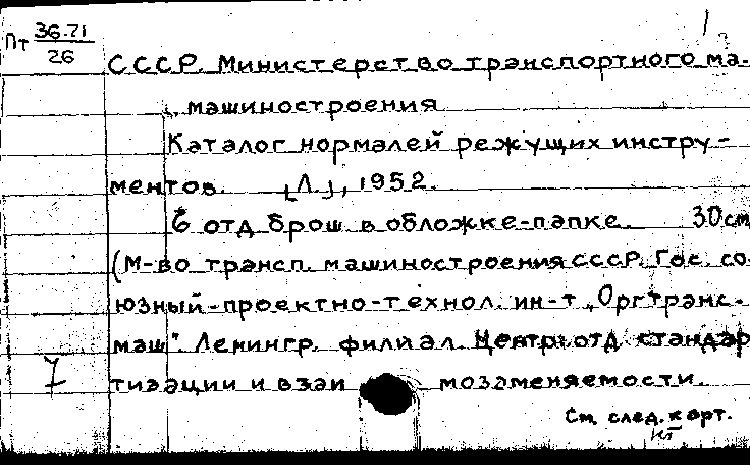 Пт 36.71/26
1
СССР. Министерство транспортного ма-
машиностроения
Каталог нормалей режущих инстру-
ментов. [Л.], 1952.
6 отд. брош. в обложке-папке. 30 см
(М-во трансп. машиностроения СССР. Гос. со
юзный проектно-технол. ин-т „Оргтранс-
маш". Ленингр. филиал. Центр. отд. стандар
7 тизации и взаи мозаменяемости.
См. след. карт.